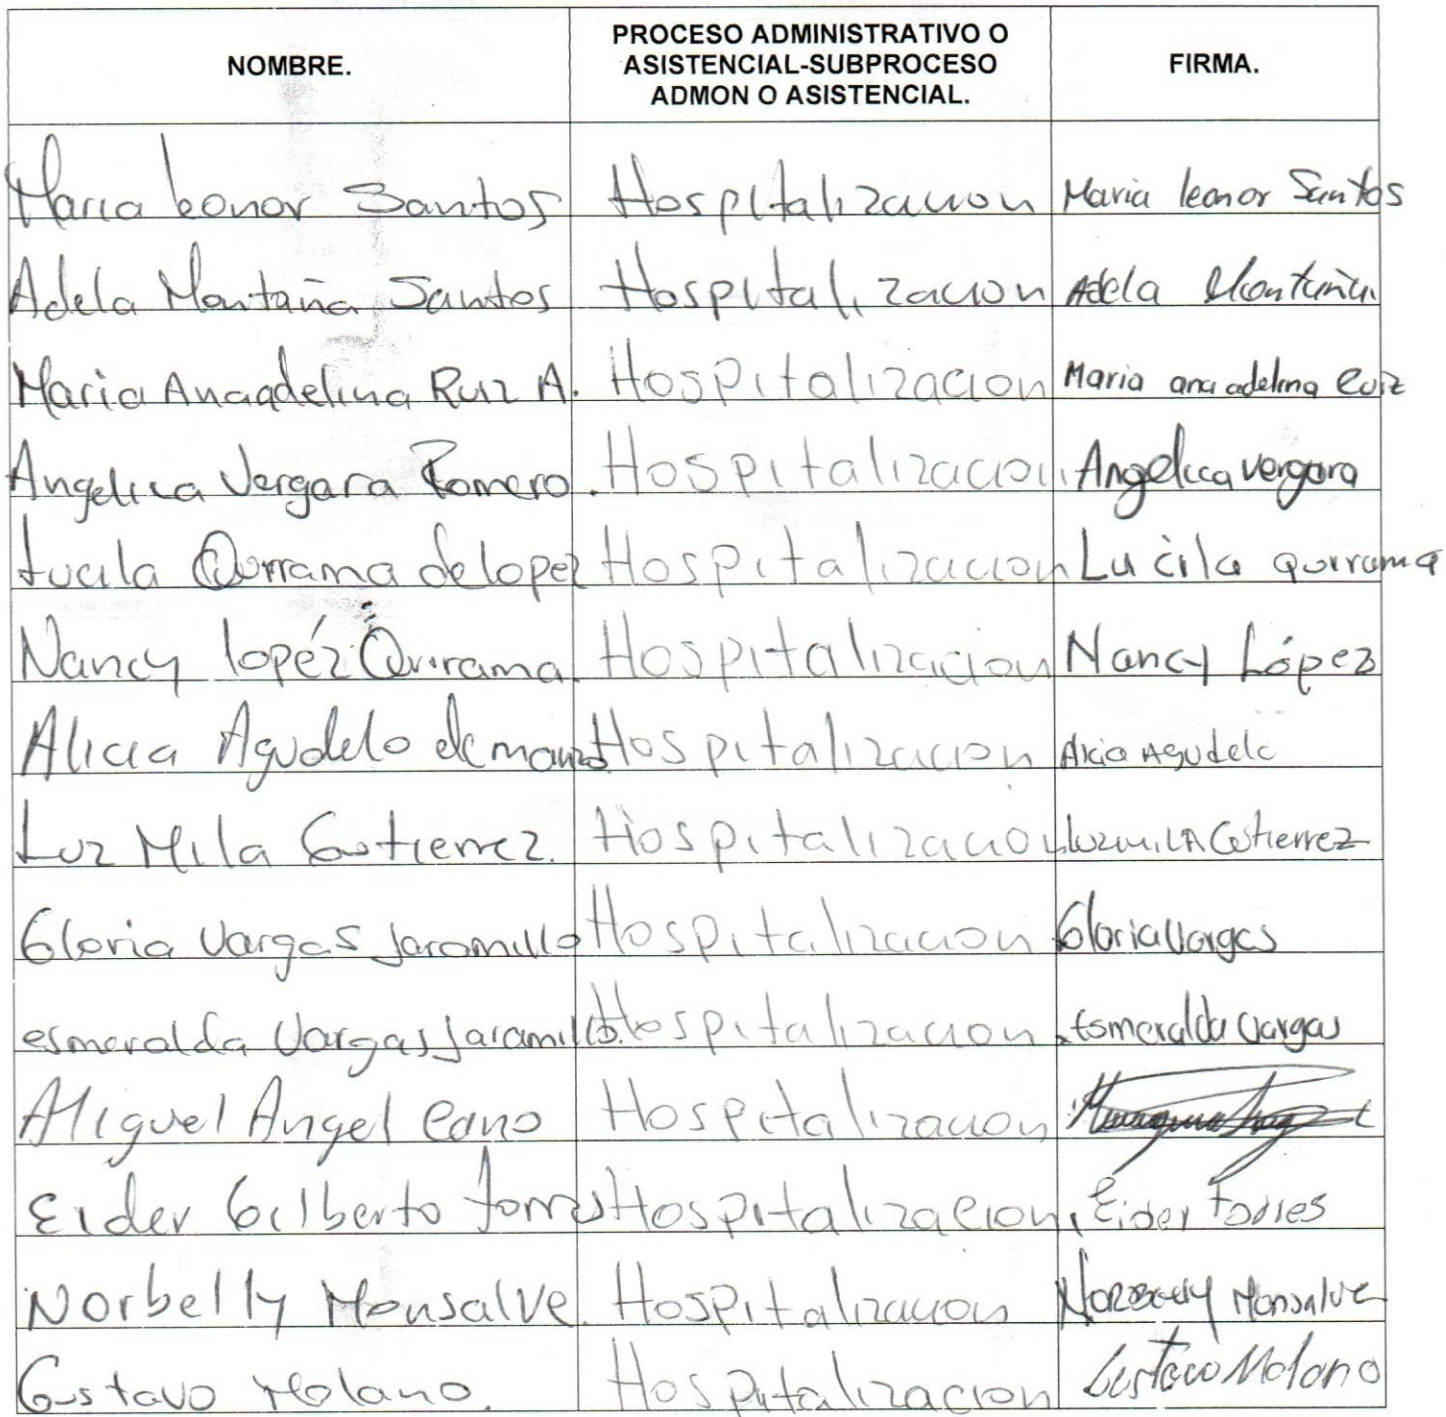 NOMBRE. PROCESO ADMINISTRATIVO O ASISTENCIAL-SUBPROCESO ADMON O ASISTENCIAL. FIRMA.
Maria Leonor Santos Hospitalizacion Maria leonor Santos
Adela Montaña Santos Hospitalizacion Adela Montaña
Maria Anaadelina Ruiz A. Hospitalizacion Maria ana adelina Ruiz
Angelica Vergara Romero. Hospitalizacion Angelica vergara
Lucila Quirrama de lopez Hospitalizacion Lucila quirrama
Nancy lopéz Quirama. Hospitalizacion Nancy López
Alicia Agudelo de Hospitalizacion Alicia Agudelo
Luz Mila Gutierrez. Hospitalizacion luzmiLA Gutierrez
Gloria Vargas Jaramillo Hospitalizacion Gloria Vargas
esmeralda Vargas Jaramillo. Hospitalizacion Esmeralda Vargas
Miguel Angel Cano Hospitalizacion
Eider Gilberto Torres Hospitalizacion Eider Torres
Norbelly Monsalve. Hospitalizacion Norbelly Monsalve
Gustavo Molano. Hospitalizacion Gustavo Molano